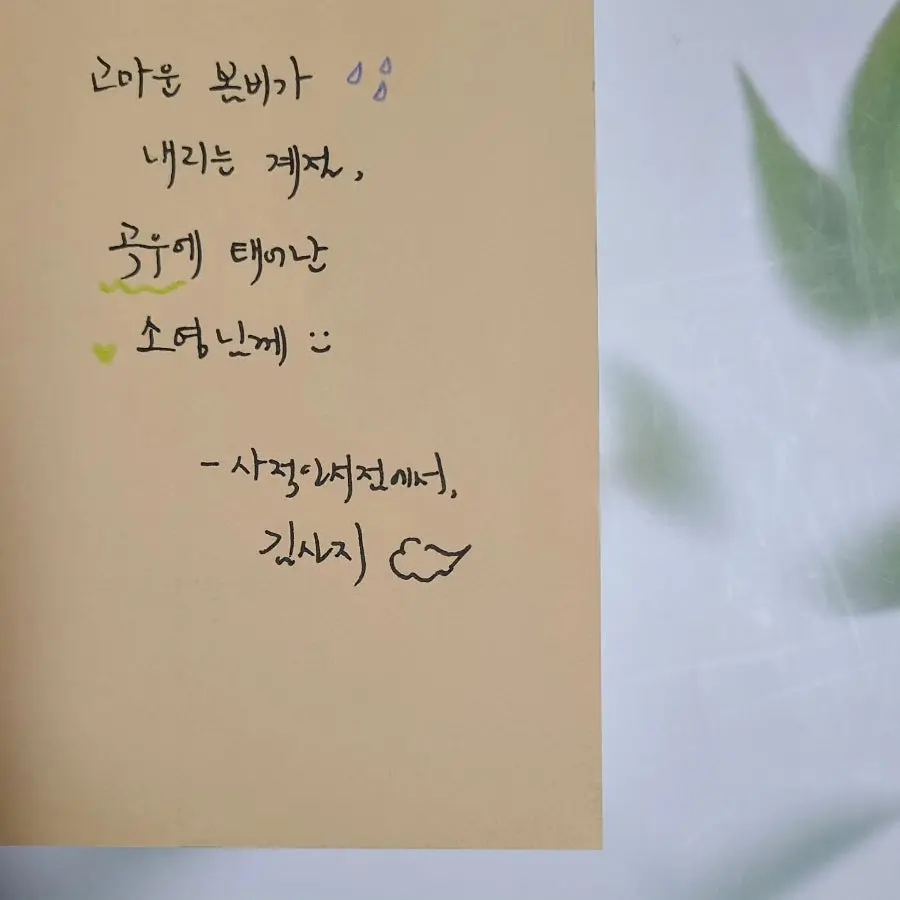 고마운 봄비가
내리는 계절,
곡우에 태어난
소영님께 :)
- 사적인서점에서,
김사지